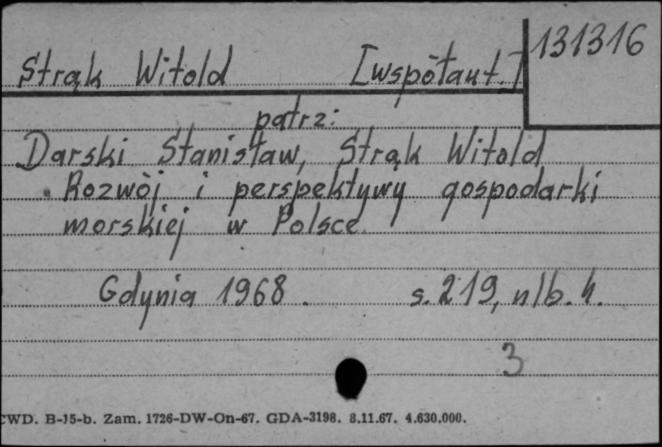 131316
Strąk Witold [współaut.]
patrz:
Darski Stanisław, Strąk Witold
Rozwój i perspektywy gospodarki
morskiej w Polsce
Gdynia 1968. s. 219, nlb. 4.
3
CWD. B-15-b. Zam. 1726-DW-On-67. GDA-3198. 8.11.67. 4.630.000.